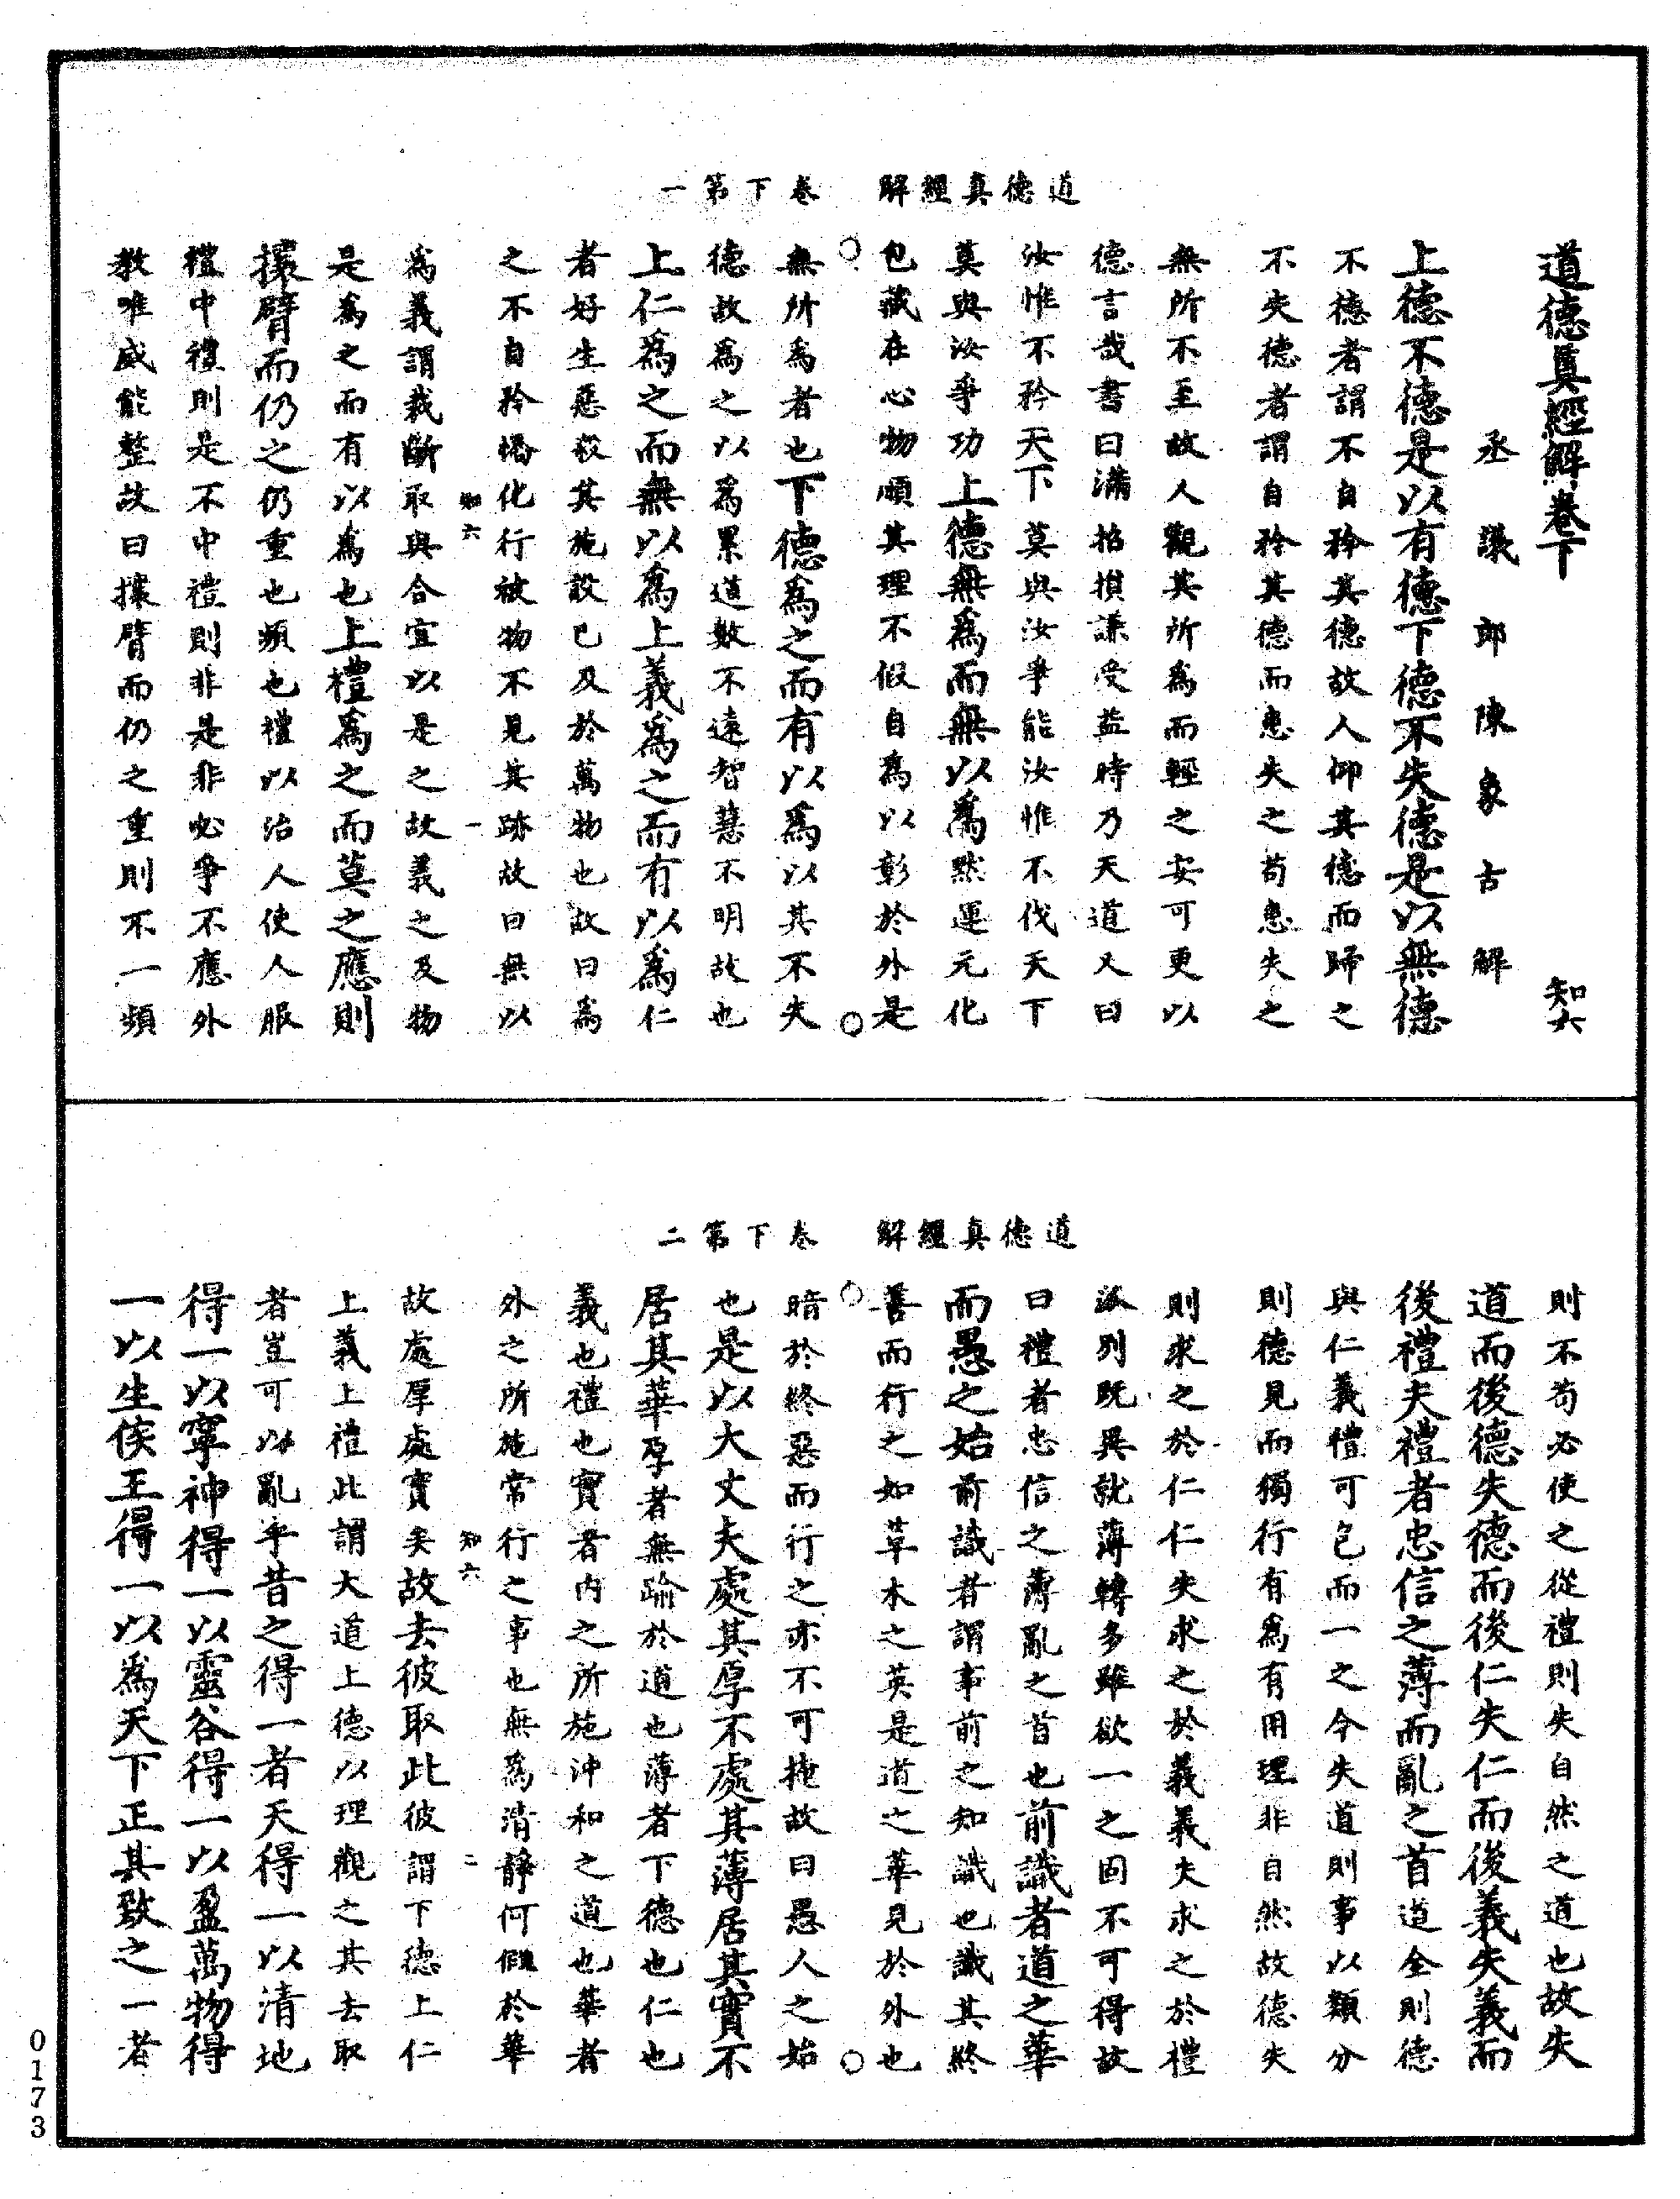 道德真經解　卷下第一
道德真經解卷下　知六
丞議郎陳象古解
上德不德是以有德下德不失德是以無德
不德者謂不自矜其德故人仰其德而歸之
不失德者謂自矜其德而患失之苟患失之
無所不至故人觀其所為而輕之安可更以
德言哉書曰滿招損謙受益時乃天道又曰
汝惟不矜天下莫與汝爭能汝惟不伐天下
莫與汝爭功上德無為而無以為默運元化
包藏在心物順其理不假自為以彰於外是
無所為者也下德為之而有以為以其不失
德故為之以為累道數不遠智慧不明故也
上仁為之而無以為上義為之而有以為仁
者好生惡殺其施設已及於萬物也故曰為
之不自矜憍化行被物不見其跡故曰無以
知六　一
為義謂裁斷取與合宜以是之故義之及物
是為之而有以為也上禮為之而莫之應則
攘臂而仍之仍重也頻也禮以治人使人服
禮中禮則是不中禮則非是非必爭不應外
教唯威能整故曰攘臂而仍之重則不一頻
道德真經解　卷下第二
則不苟必使之從禮則失自然之道也故失
道而後德失德而後仁失仁而後義失義而
後禮夫禮者忠信之薄而亂之首道全則德
與仁義禮可包而一之今失道則事以類分
則德見而獨行有為有用理非自然故德失
則求之於仁仁失求之於義義失求之於禮
派別既異就薄轉多雖欲一之固不可得故
曰禮者忠信之薄亂之首也前識者道之華
而愚之始前識者謂事前之知識也識其終
善而行之如草木之英是道之華見於外也
暗於終惡而行之亦不可掩故曰愚人之始
也是以大丈夫處其厚不處其薄居其實不
居其華厚者無踰於道也薄者下德也仁也
義也禮也實者內之所施沖和之道也華者
外之所施常行之事也無為清靜何假於華
知六　二
故處厚處實矣故去彼取此彼謂下德上仁
上義上禮此謂大道上德以理觀之其去取
者豈可以亂乎昔之得一者天得一以清地
得一以寧神得一以靈谷得一以盈萬物得
一以生侯王得一以為天下正其致之一者
0173